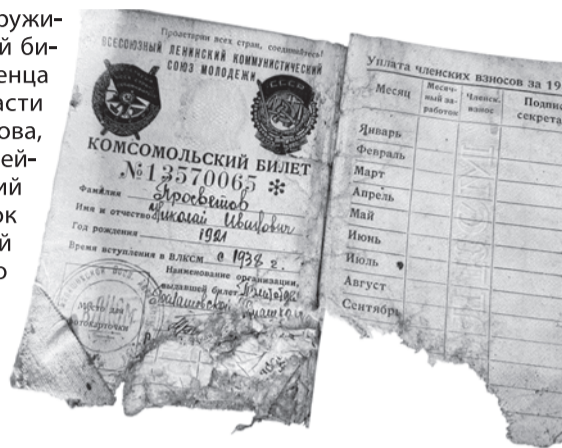 ружи-
й би-
енца
асти
ова,
ей-
ий
ок
й
о
Пролетарии всех стран, соединяйтесь!
ВСЕСОЮЗНЫЙ ЛЕНИНСКИЙ КОММУНИСТИЧЕСКИЙ
СОЮЗ МОЛОДЕЖИ
СССР
КОМСОМОЛЬСКИЙ БИЛЕТ
№13570065 *
Фамилия Просветов
Имя и отчество Николай Иванович
Год рождения 1921
Время вступления в ВЛКСМ с 1938 г.
Наименование организации,
выдавшей билет
Место для
фотокарточки
Уплата членских взносов за 19
Месяц
Месяч-
ный за-
работок
Членск.
взнос
Подпис
секрета
Январь
Февраль
Март
Апрель
Май
Июнь
Июль
Август
Сентябрь